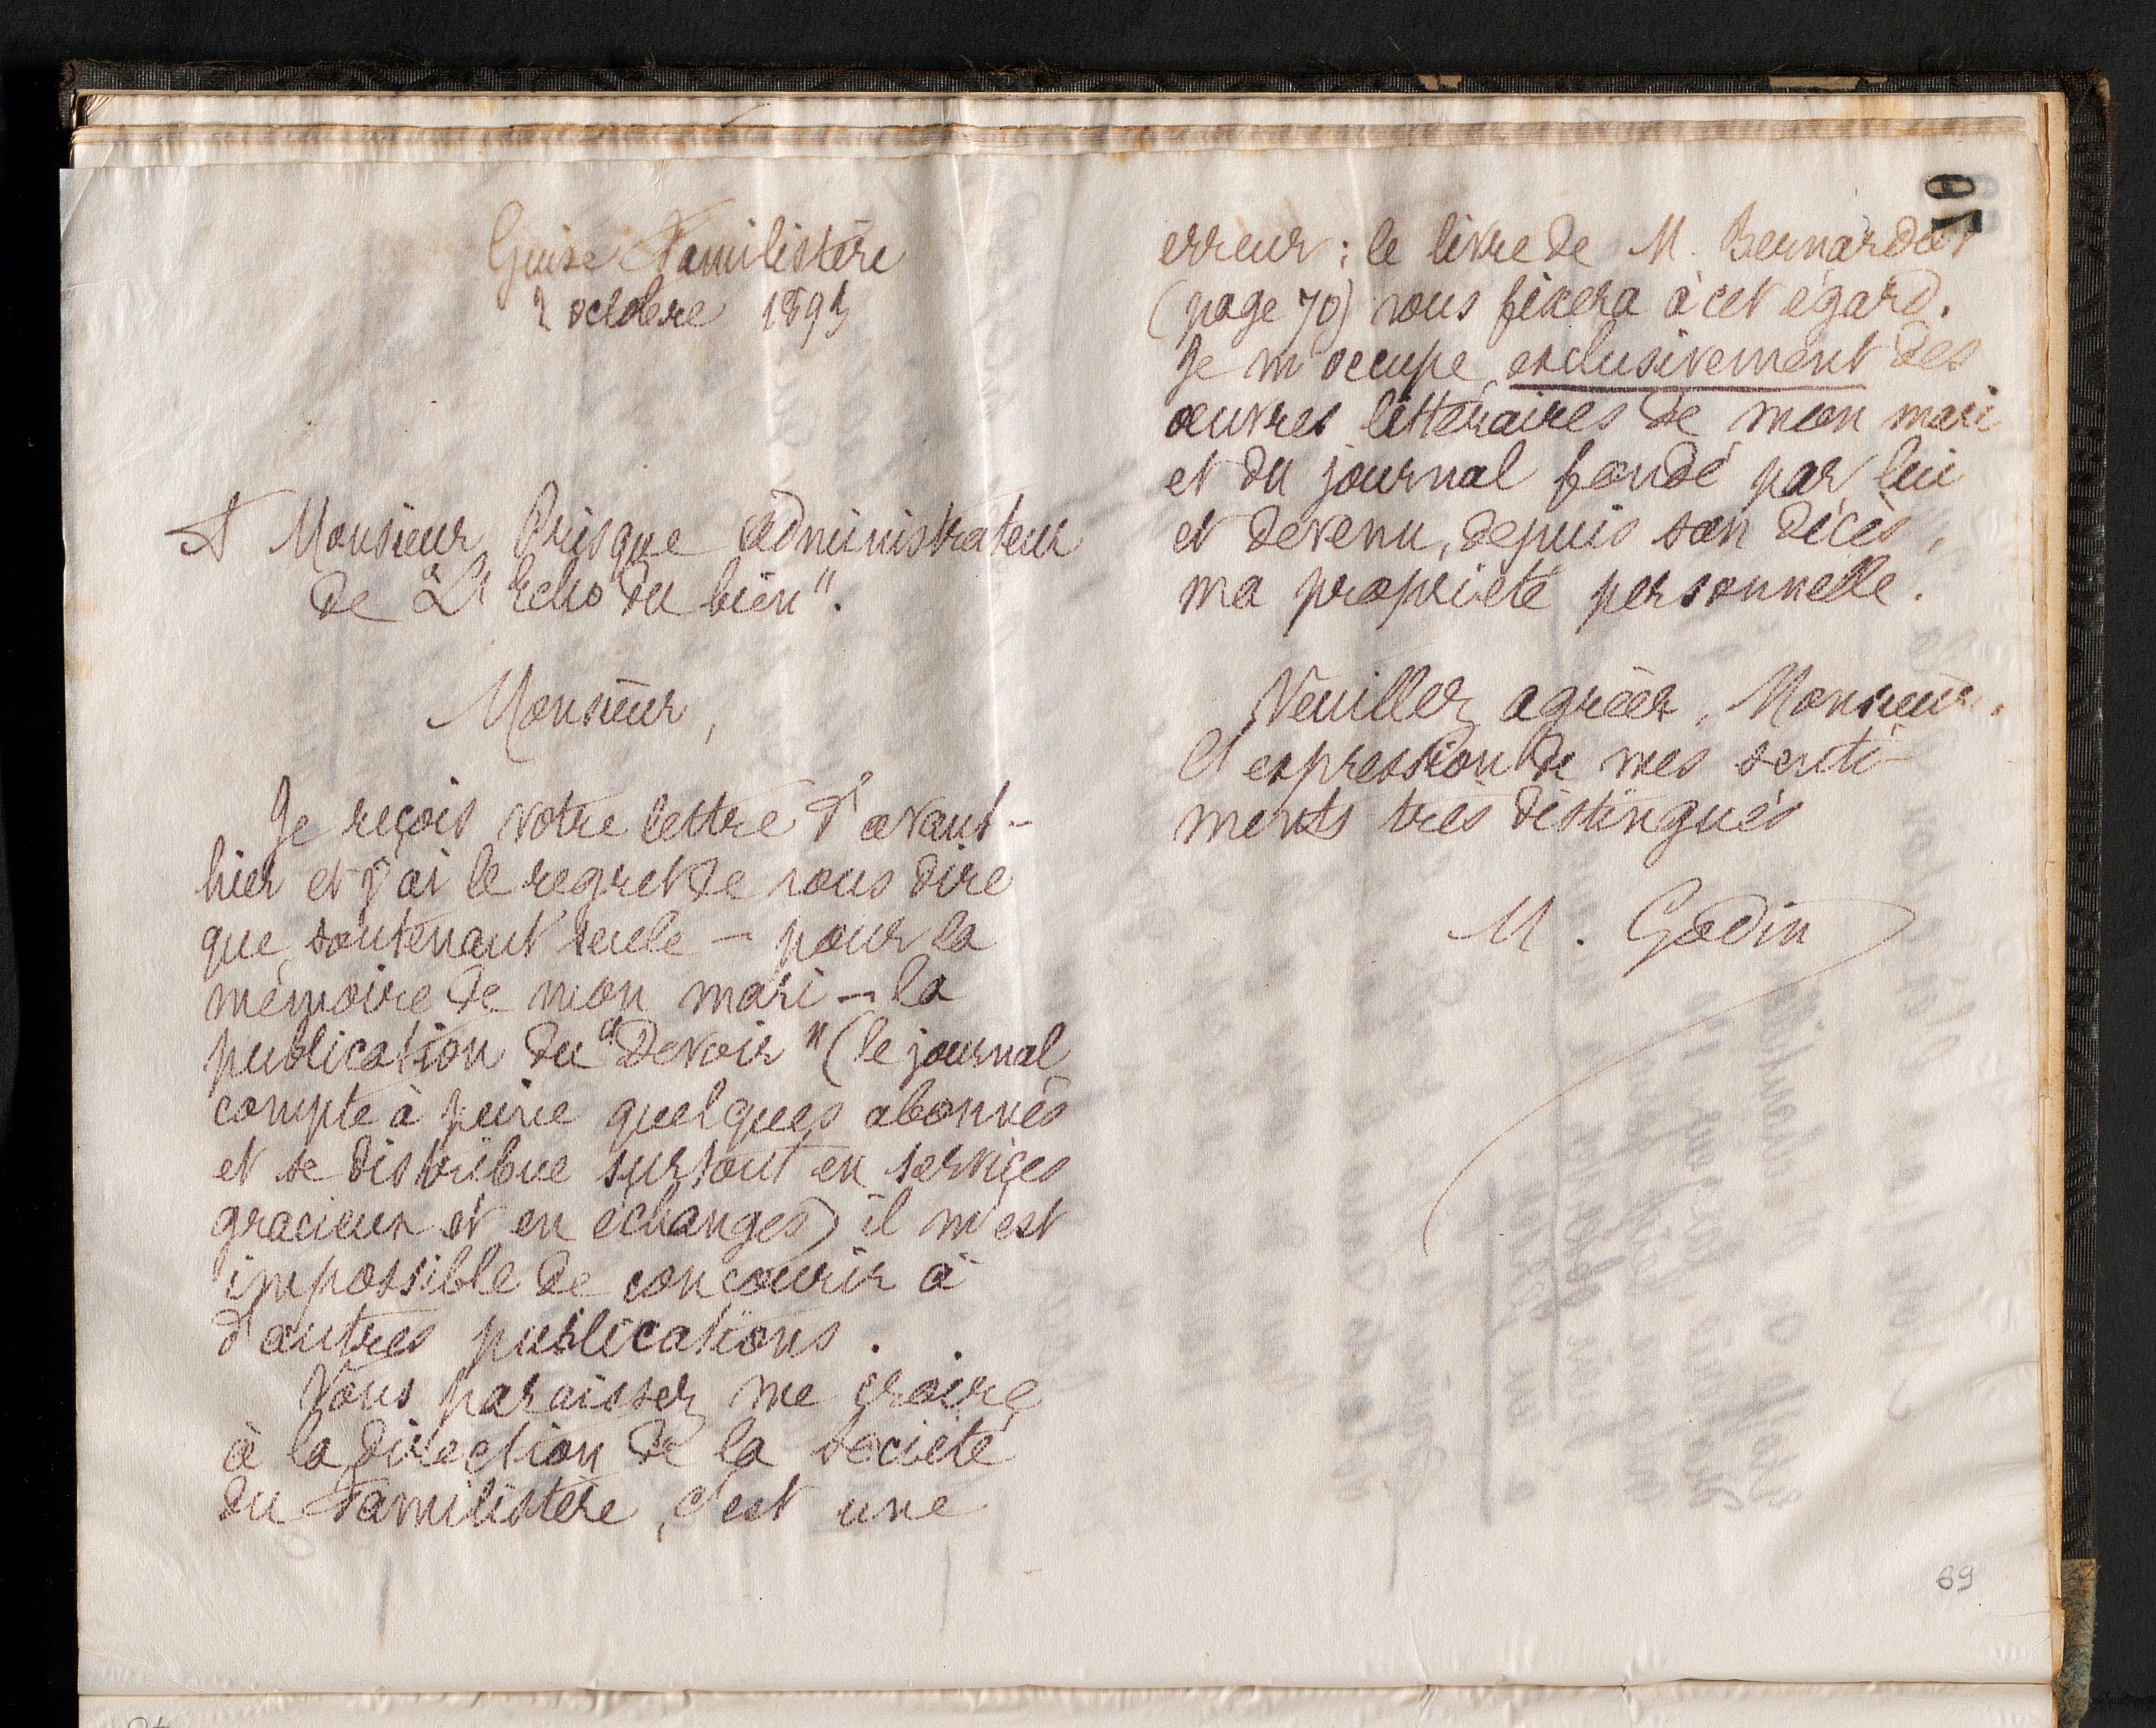 Guise Familistère
2 octobre 1893
A Monsieur Prisque administrateur
de "L'Echo du bien".
Monsieur,
Je reçois votre lettre d'avant-
hier et j'ai le regret de vous dire
que, soutenant seule – pour la
mémoire de mon mari – la
publication du "Devoir" (le journal
compte à peine quelques abonnés
et se distribue surtout en services
gracieux et en échanges) il m'est
impossible de concourir à
d'autres publications.
Vous paraissez me croire
à la direction de la société
du Familistère, c'est une
70
erreur : le livre de M. Bernardot
(page 70) vous fixera à cet égard.
Je m'occupe exclusivement des
œuvres littéraires de mon mari
et du journal fondé par lui
et devenu, depuis son décès,
ma propriété personnelle.
Veuillez agréer, Monsieur,
l'expression de mes senti-
ments très distingués
M. Godin
69